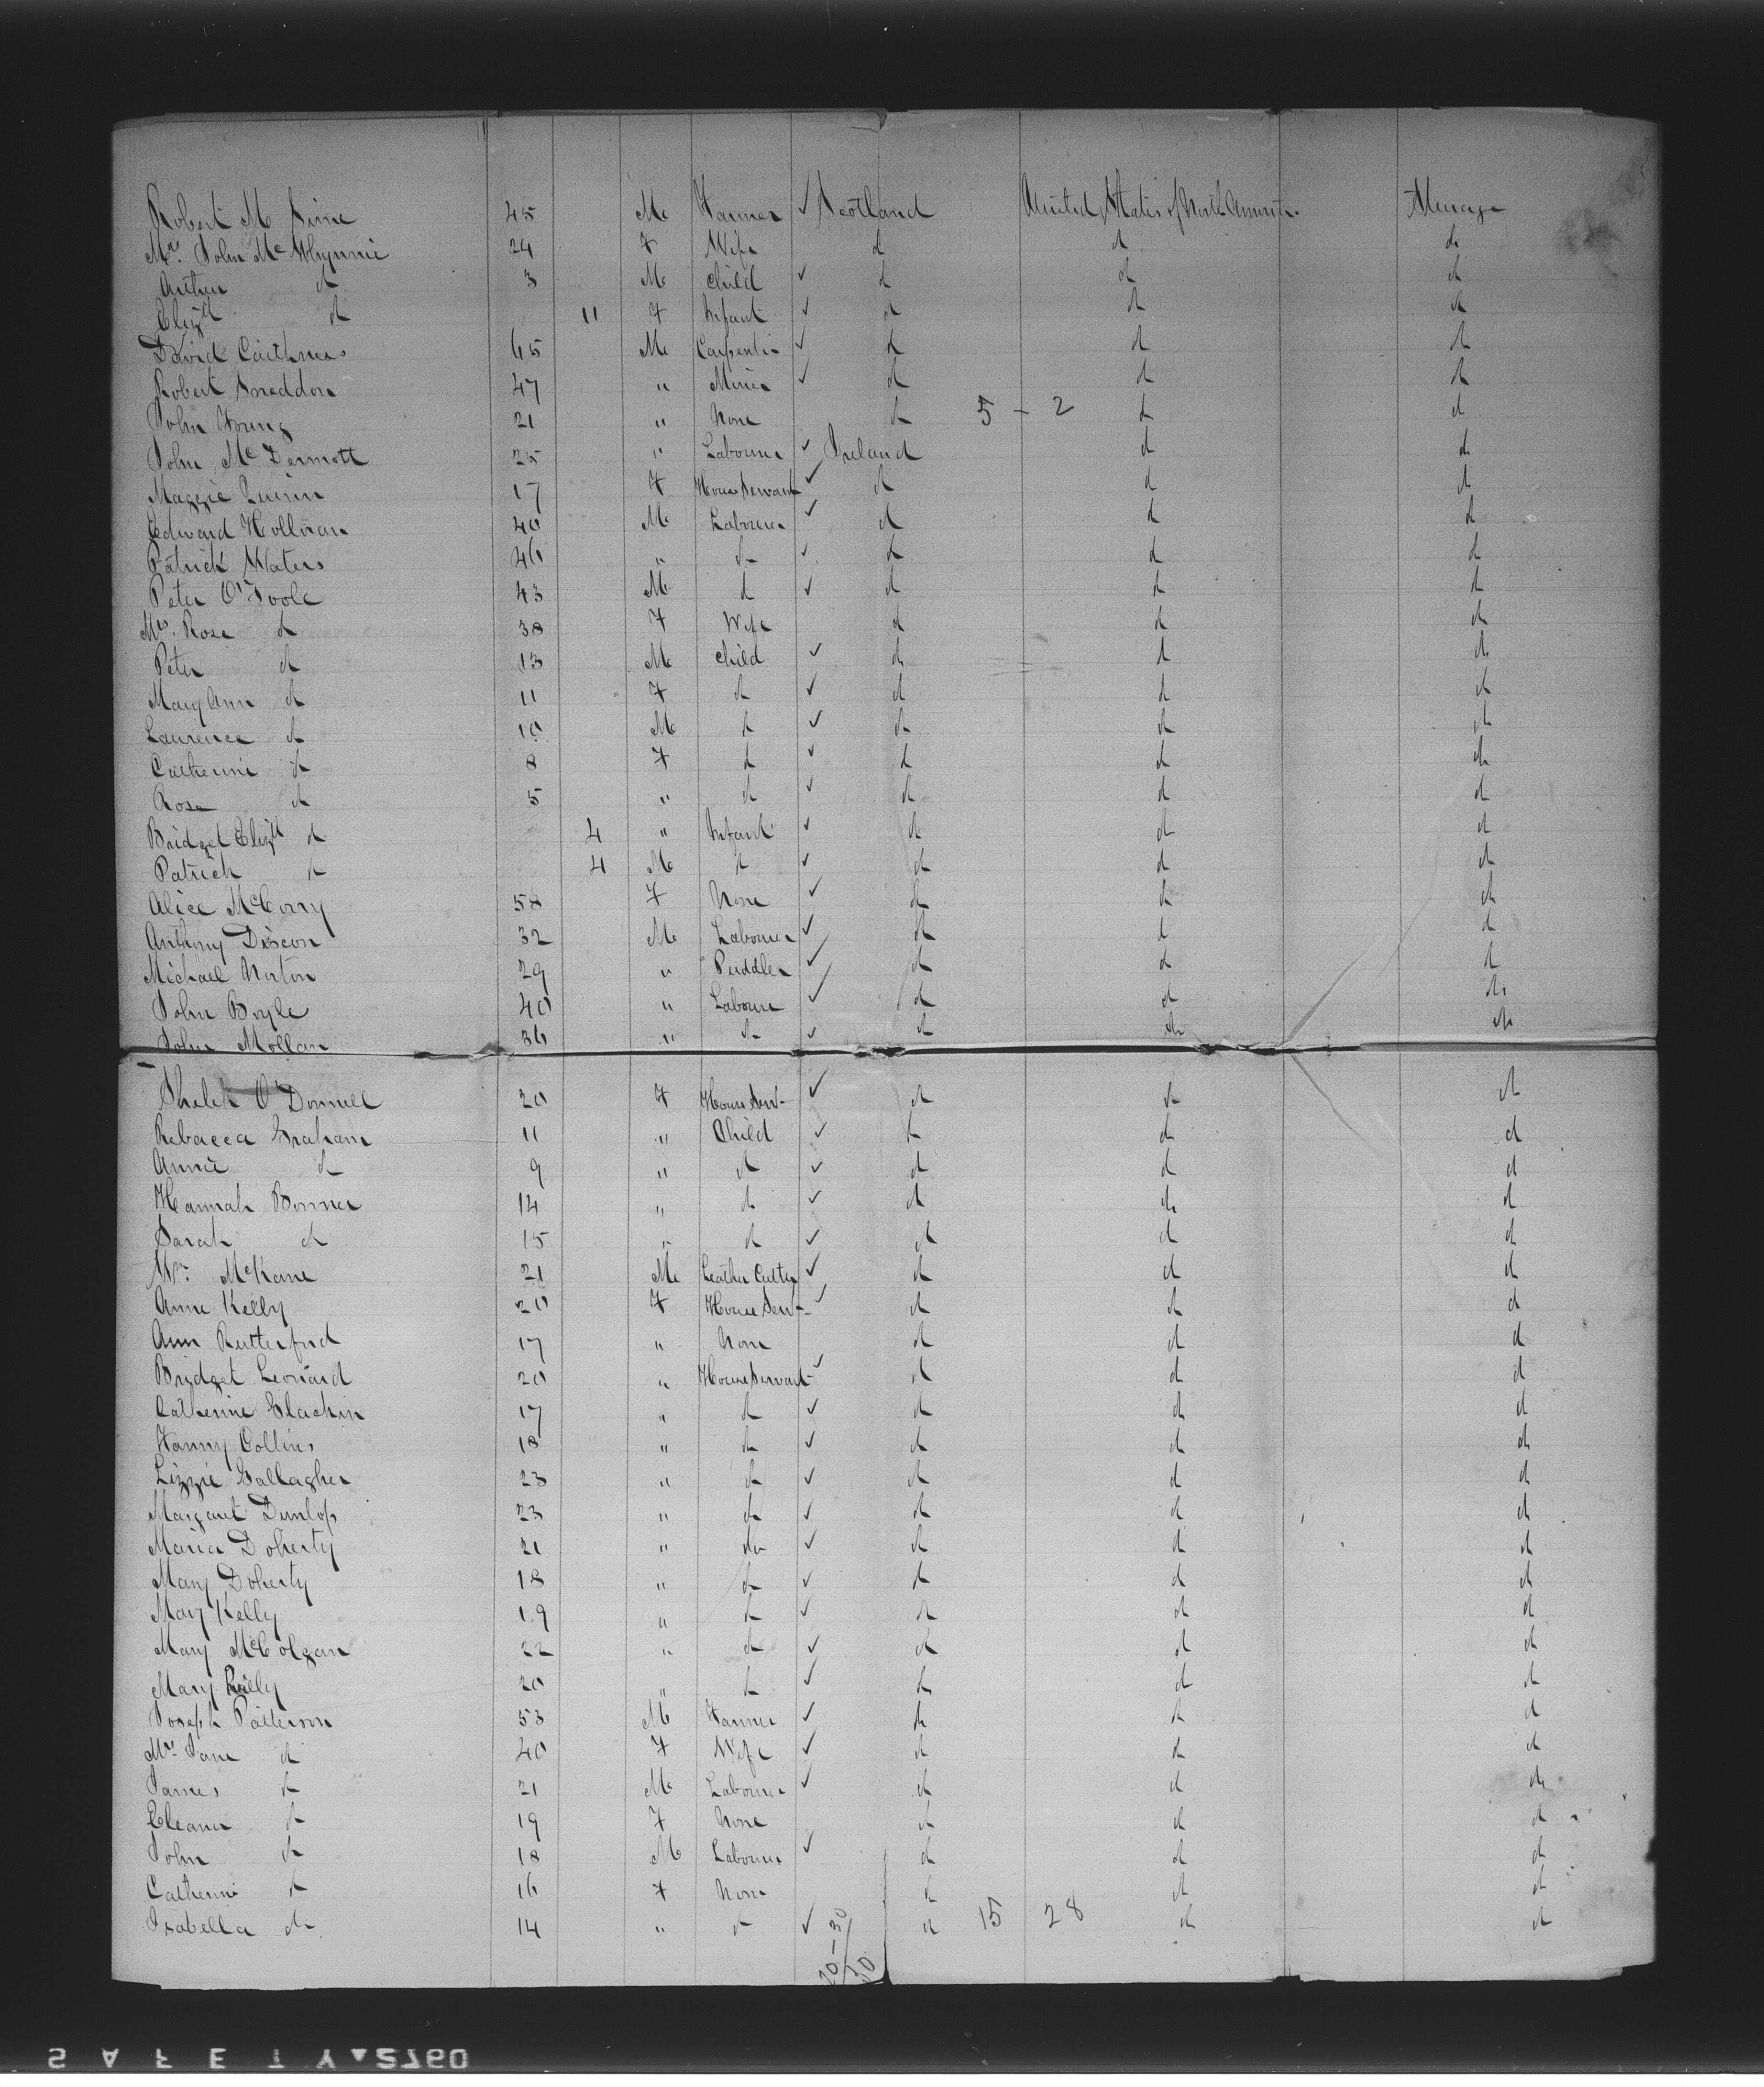 Robert M Sime 45 M Farmer ✓ Scotland United States of North America Steerage
Mrs. John McWhynnie 24 F Wife do do do
Arthur do 3 M Child ✓ do do do
Elizth do 11 F Infant ✓ do do do
David Caithness 45 M Carpenter ✓ do do do
Robert Sneddon 47 " Miner ✓ do do do
John Young 21 " None do 5 - 2 do do
John McDermott 25 " Labourer ✓ Ireland do do
Maggie 17 F House Servant ✓ do do do
Edward Holloran 40 M Labourer ✓ do do do
Patrick Waters 46 " do ✓ do do do
Peter O'Toole 43 M do ✓ do do do
Mrs. Rose do 38 F Wife do do do
Peter do 13 M Child ✓ do do do
Mary Ann do 11 F do ✓ do do do
Laurence do 10 M do ✓ do do do
Catherine do 8 F do ✓ do do do
Rose do 5 " do ✓ do do do
Bridget Elizth do 4 " Infant ✓ do do do
Patrick do 4 M do ✓ do do do
Alice McCorry 58 F None ✓ do do do
Anthony Discon 32 M Labourer ✓ do do do
Michael Norton 29 " Puddler ✓ do do do
John Boyle 40 " Labourer ✓ do do do
John Mollan 36 " do ✓ do do do
O'Donnell 20 F House Servt ✓ do do do
Rebacca Graham 11 " Child ✓ do do do
Annie do 9 " do ✓ do do do
Hannah Bonner 14 " do ✓ do do do
Sarah do 15 " do ✓ do do do
Wm. McKane 21 M Leather Cutter ✓ do do do
Anne Kelly 20 F House Servt ✓ do do do
Ann Rutterford 17 " None do do do
Bridget Leonard 20 " House Servant ✓ do do do
Catherine Glackin 17 " do ✓ do do do
Fanny Collins 18 " do ✓ do do do
Lizzie Gallagher 23 " do ✓ do do do
Margaret Dunlop 23 " do ✓ do do do
Maria Doherty 21 " do ✓ do do do
Mary Doherty 18 " do ✓ do do do
Mary Kelly 19 " do ✓ do do do
Mary McColgan 22 " do ✓ do do do
Mary Reilly 20 " do ✓ do do do
Joseph Patterson 53 M Farmer ✓ do do do
Mrs. Jane do 40 F Wife ✓ do do do
James do 21 M Labourer ✓ do do do
Eleanor do 19 F None do do do
John do 18 M Labourer ✓ do do do
Catherine do 16 F None do do do
Isabella do 14 " do ✓ do 15 28 do do
20-30
50
SAFETY▲2760